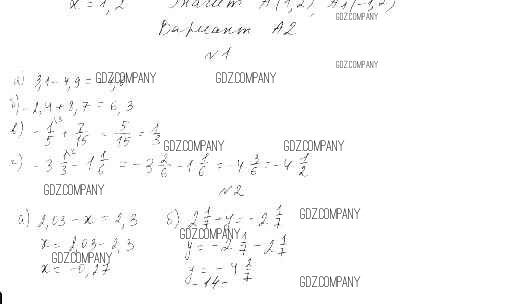 x = 1,2 Значит A(1,2), A1(-1,2)
GDZ.COMPANY
Вариант A2
№1
GDZ.COMPANY
а) 3,1 - 4,9 =
GDZ.COMPANY GDZ.COMPANY
б) -2,4 + 2,7 = 6,3
в) -1/5 + 2/15 - 5/15 = 1/3
GDZ.COMPANY GDZ.COMPANY
г) -3 1/3 - 1 1/6 = -3 2/6 - 1 1/6 = -4 3/6 = -4 1/2
GDZ.COMPANY
№2
а) 2,03 - x = 2,3 б) 2 1/7 - y = -2 1/7
GDZ.COMPANY
GDZ.COMPANY
x = 2,03 - 2,3 y = -2 1/7 - 2 1/7
GDZ.COMPANY
x = -0,27 y = -4 2/7
-14=
GDZ.COMPANY